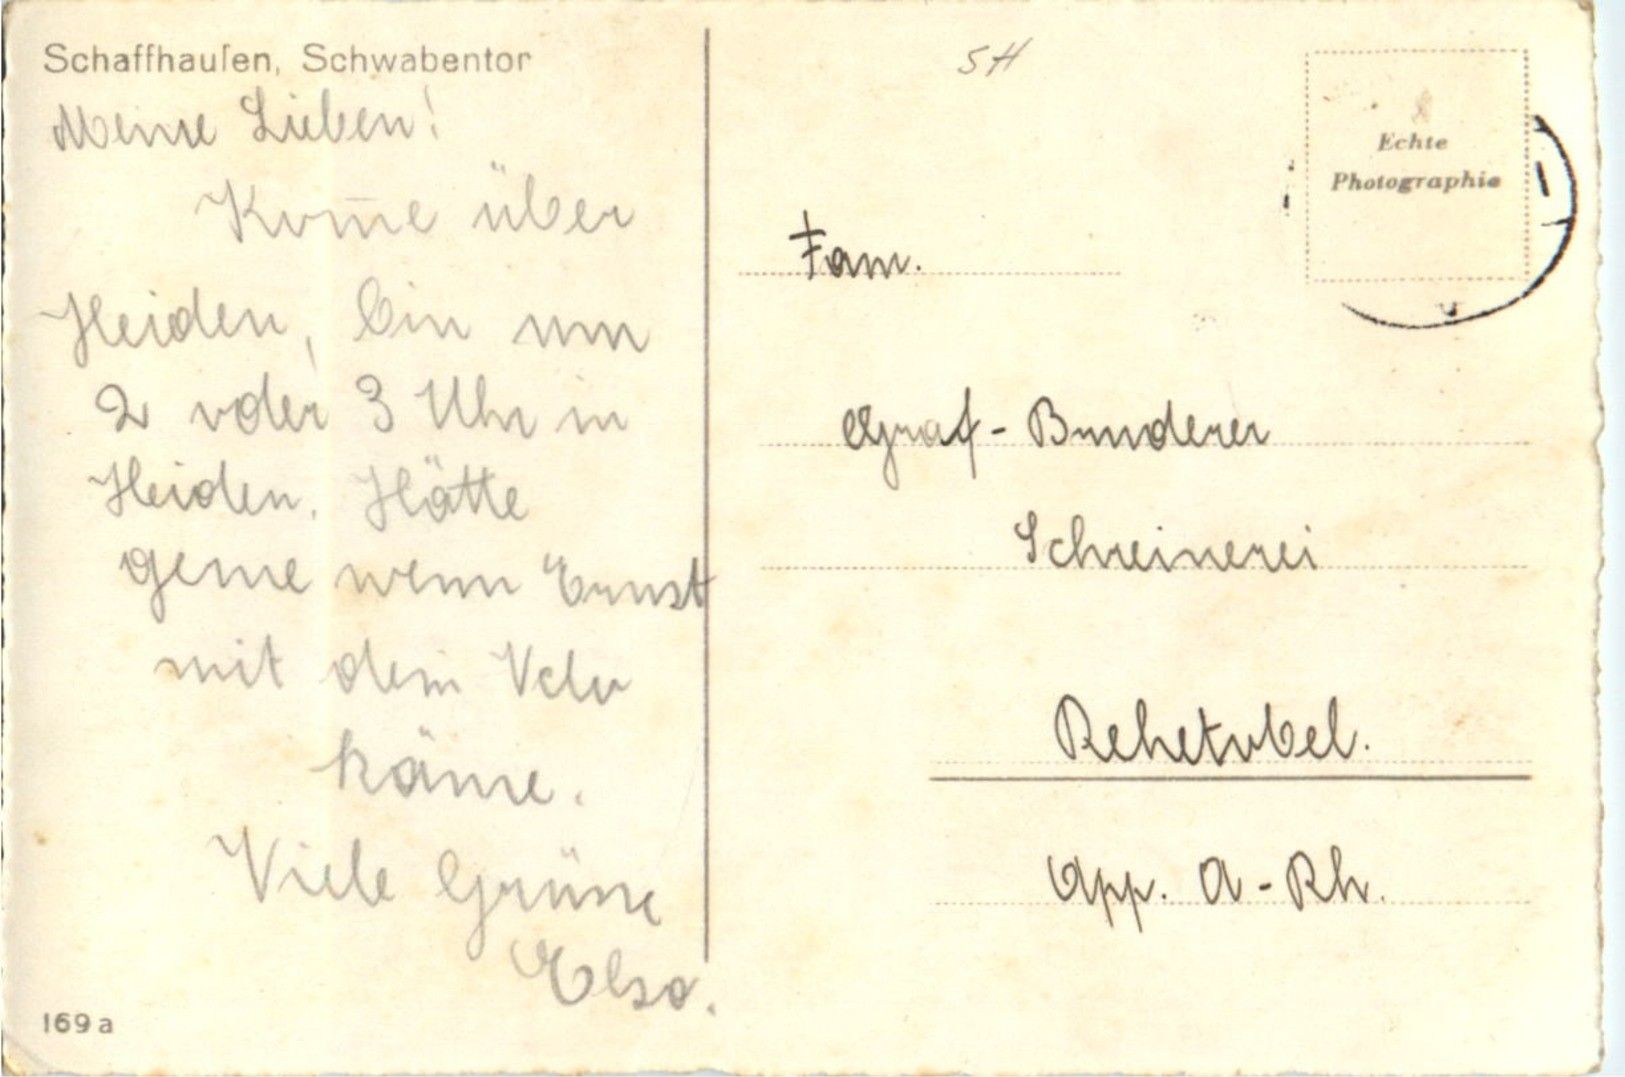 Schaffhauſen, Schwabentor
Meine Lieben!
Kom̅e über
Heiden, bin um
2 oder 3 Uhr in
Heiden. Hätte
gerne wenn Ernst
mit dem Velo
käme.
Viele Grüsse
Elsa.
169 a
SH
Echte
Photographie
Fam.
Graf - Brunderer
Schreinerei
Rehetobel.
App. A - Rh.